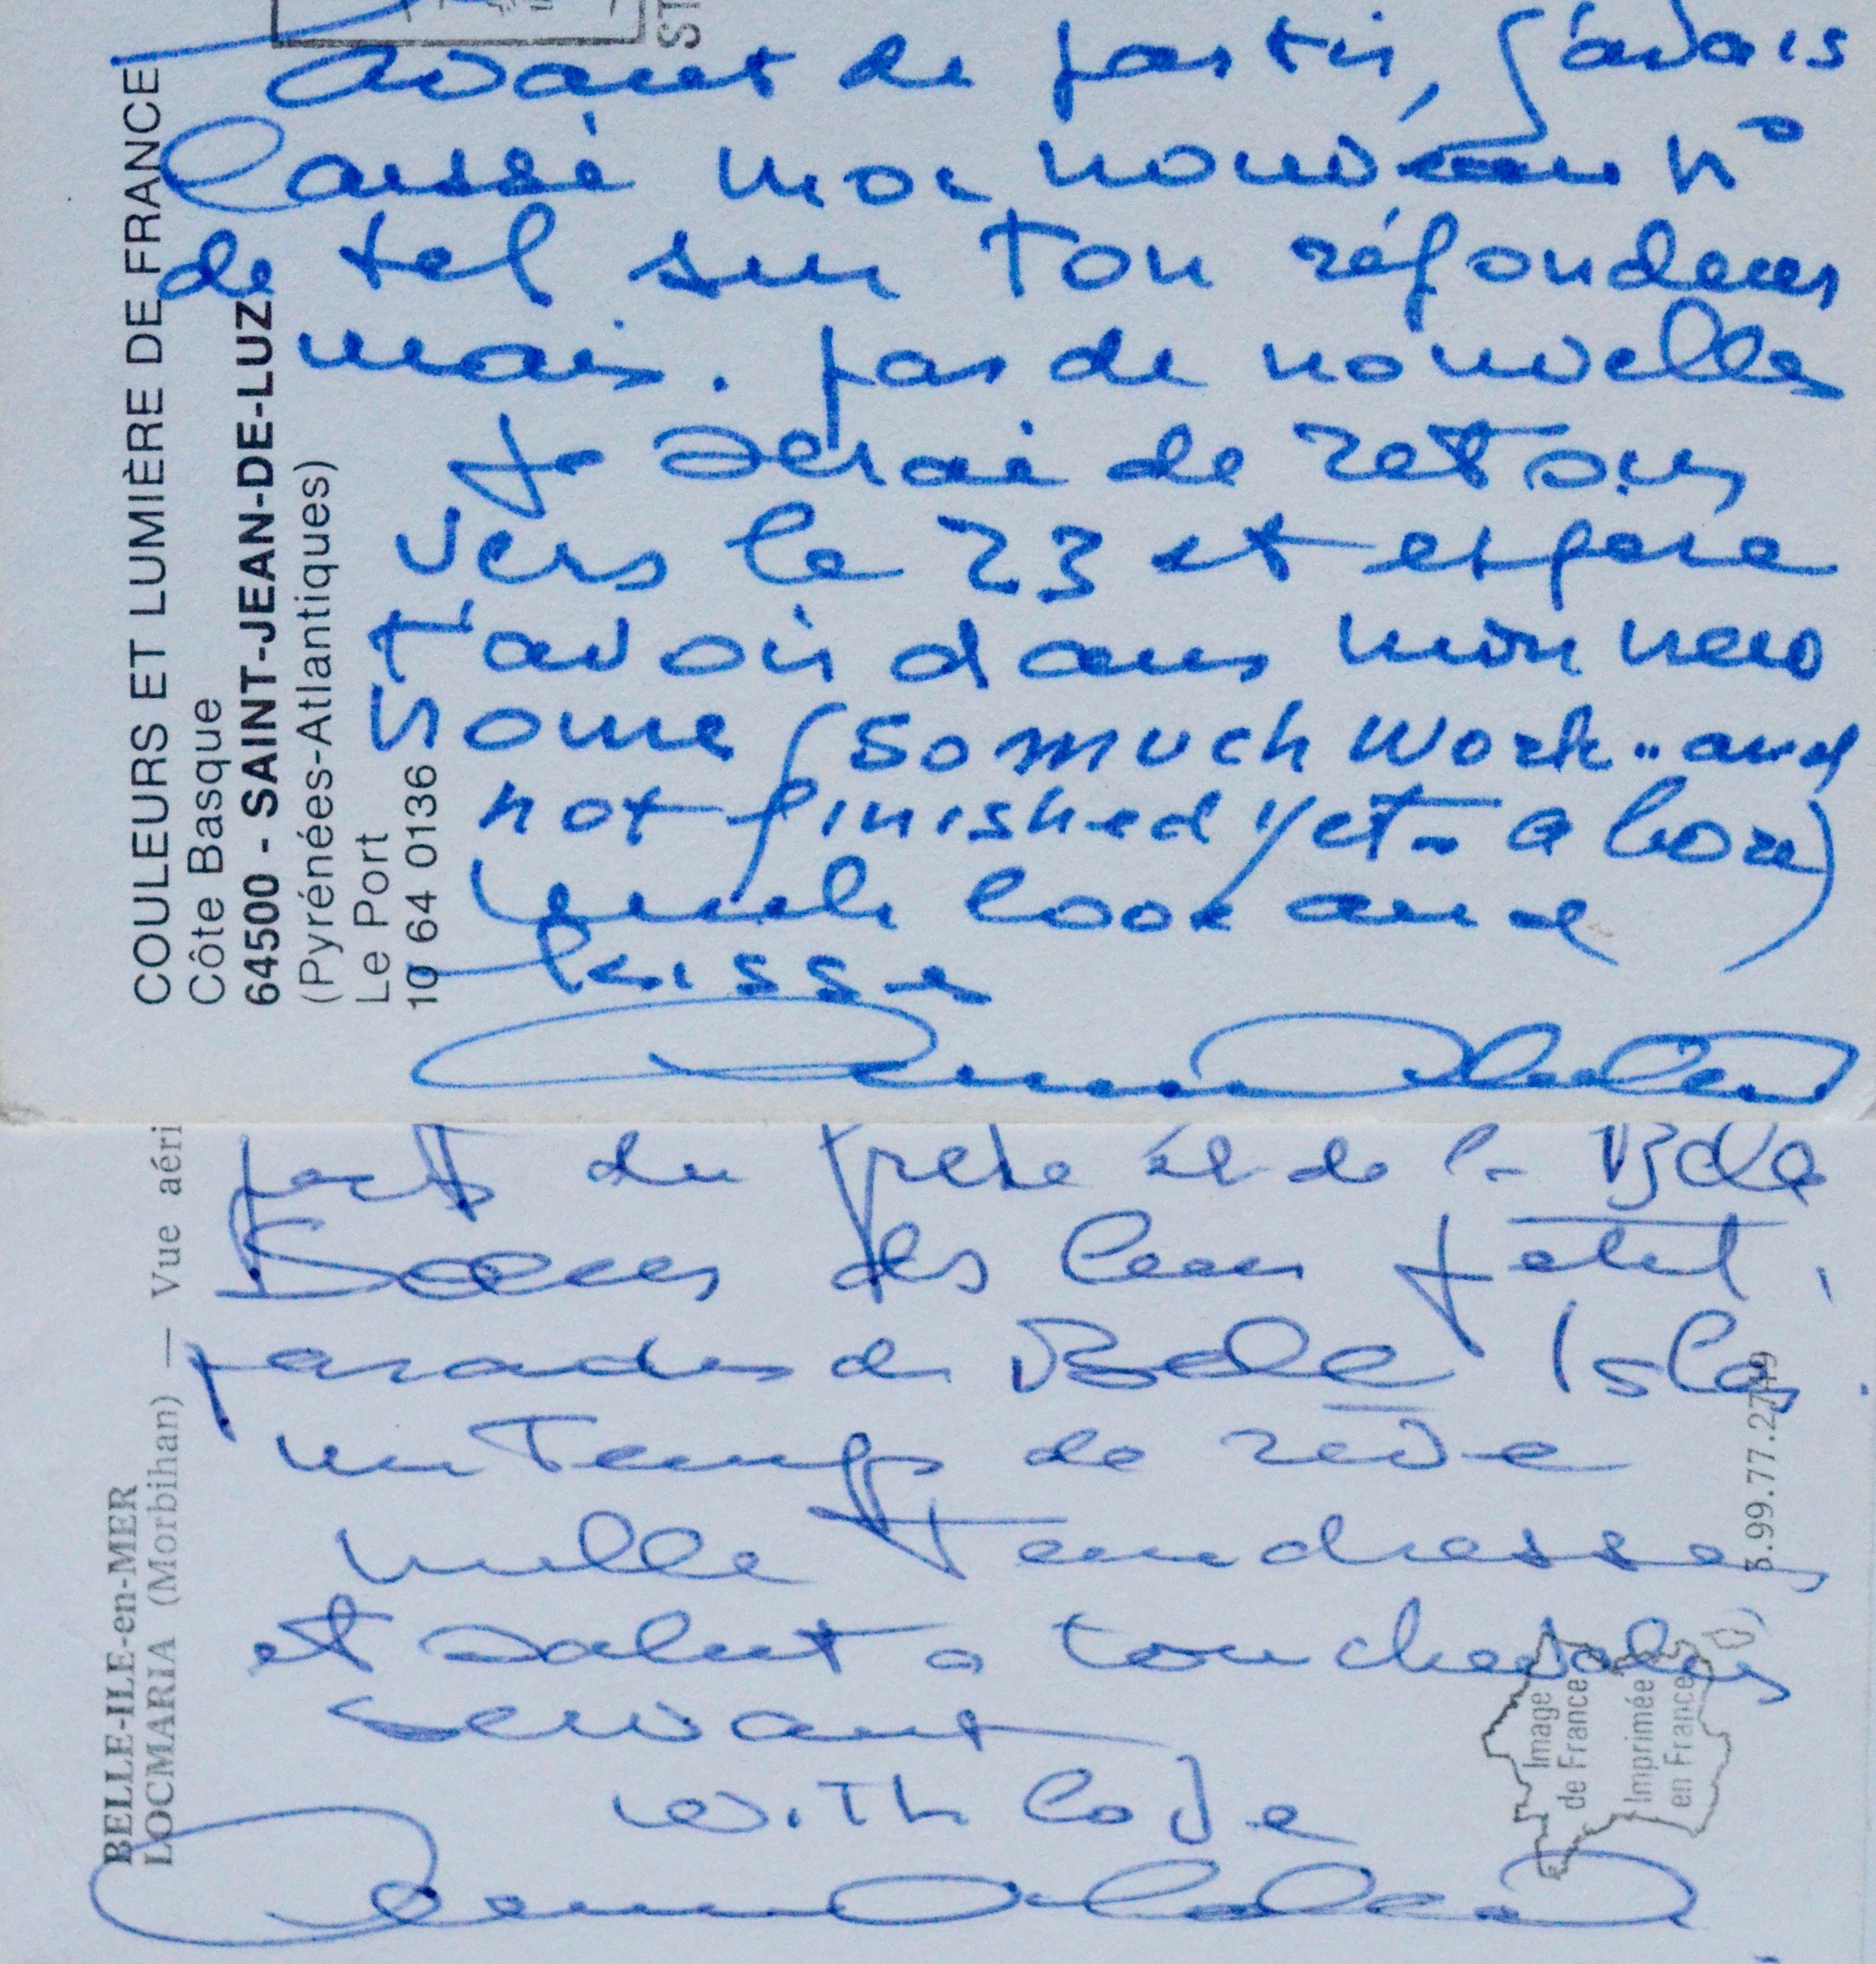 ST
COULEURS ET LUMIÈRE DE FRANCE
Côte Basque
64500 - SAINT-JEAN-DE-LUZ
(Pyrénées-Atlantiques)
Le Port
10 64 0136
avant de partir, j'avais
laissé mon nouveau n°
de tel sur ton répondeur
mais. pas de nouvelles
Je serai de retour
vers le 23 et espère
t'avoir dans mon new
home (so much work.. and
not finished yet - a bore)
much love and
kisses
BELLE-ILE-en-MER
LOCMARIA (Morbihan) — Vue aéri
du de la Belle
des
de Belle Isle.
un temps de rêve
mille tendresses
et salut a ton chevalier
servant
with love
3.99.77.2749
Image
de France
Imprimée
en France